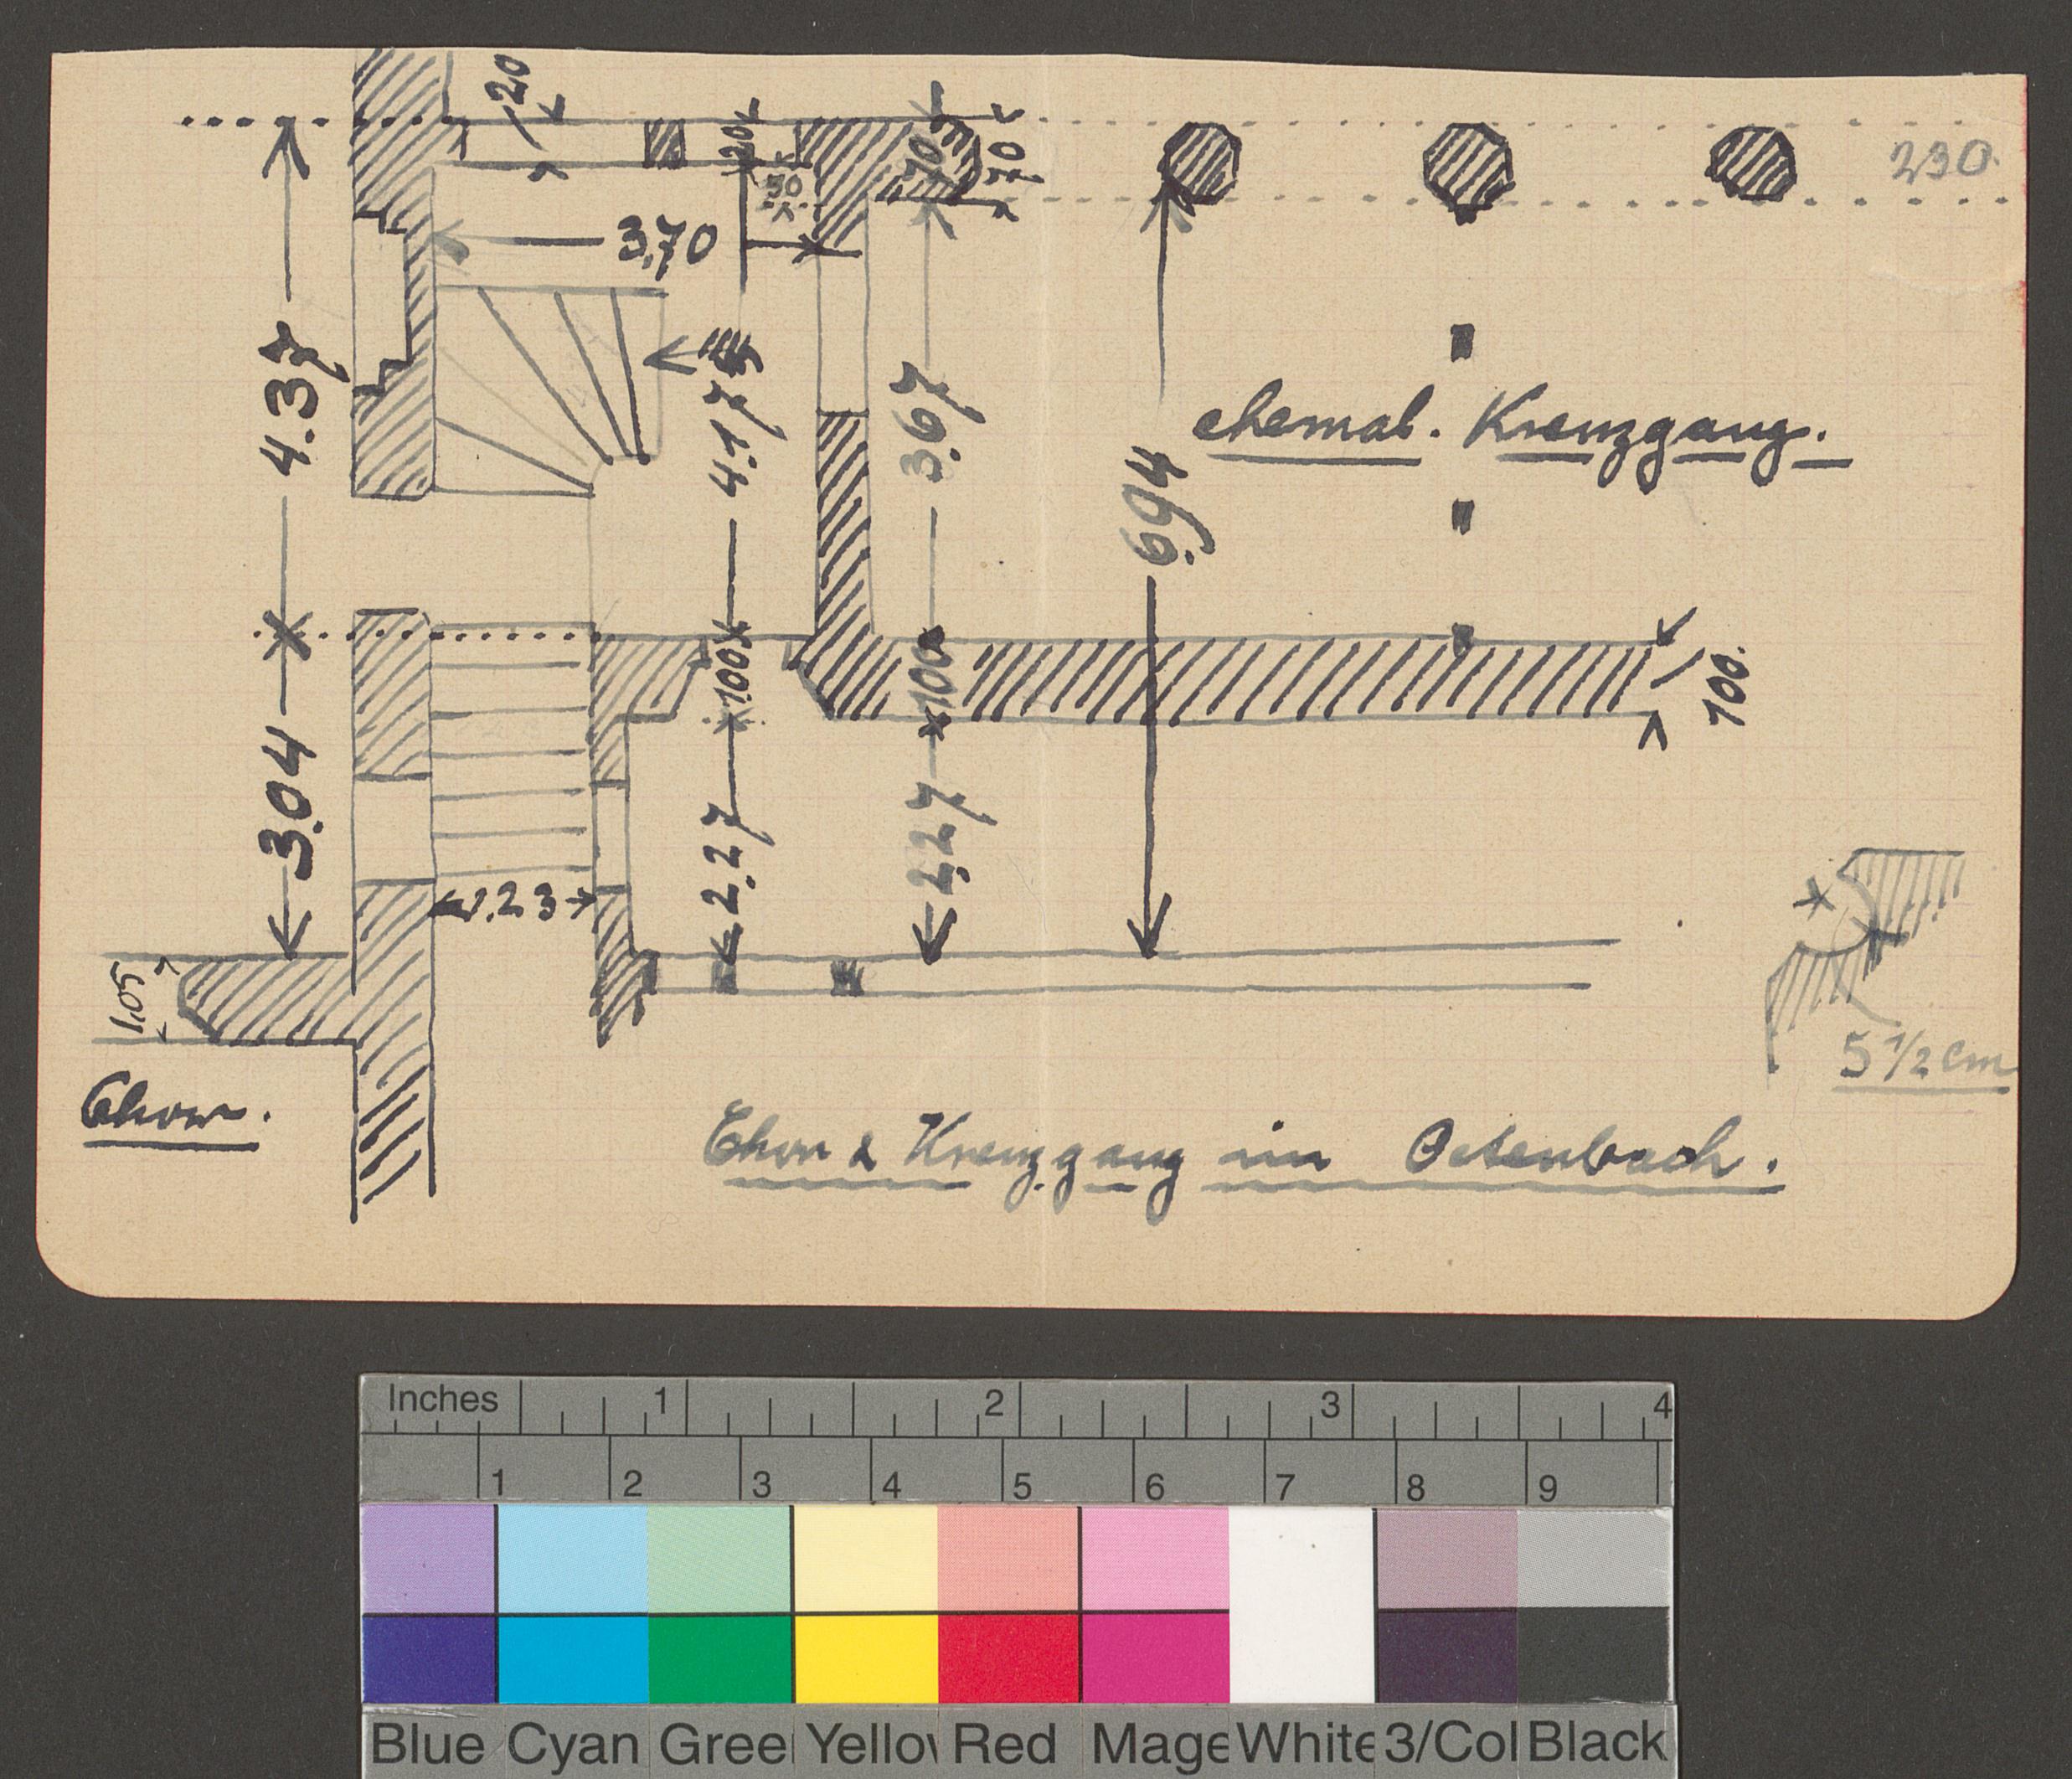 20
20
70
70
230.
50
3.70
4.37
4.17
3.67
6.94
chemal. Kreuzgang.
100
100
100.
3.04
2.27
2.27
1.23
1.05
5 1/2 cm
Chor.
Chor & Kreuzgang im Oetenbach.
Inches 1 2 3 4
1 2 3 4 5 6 7 8 9
Blue Cyan Gree Yello Red Mage White 3/Col Black